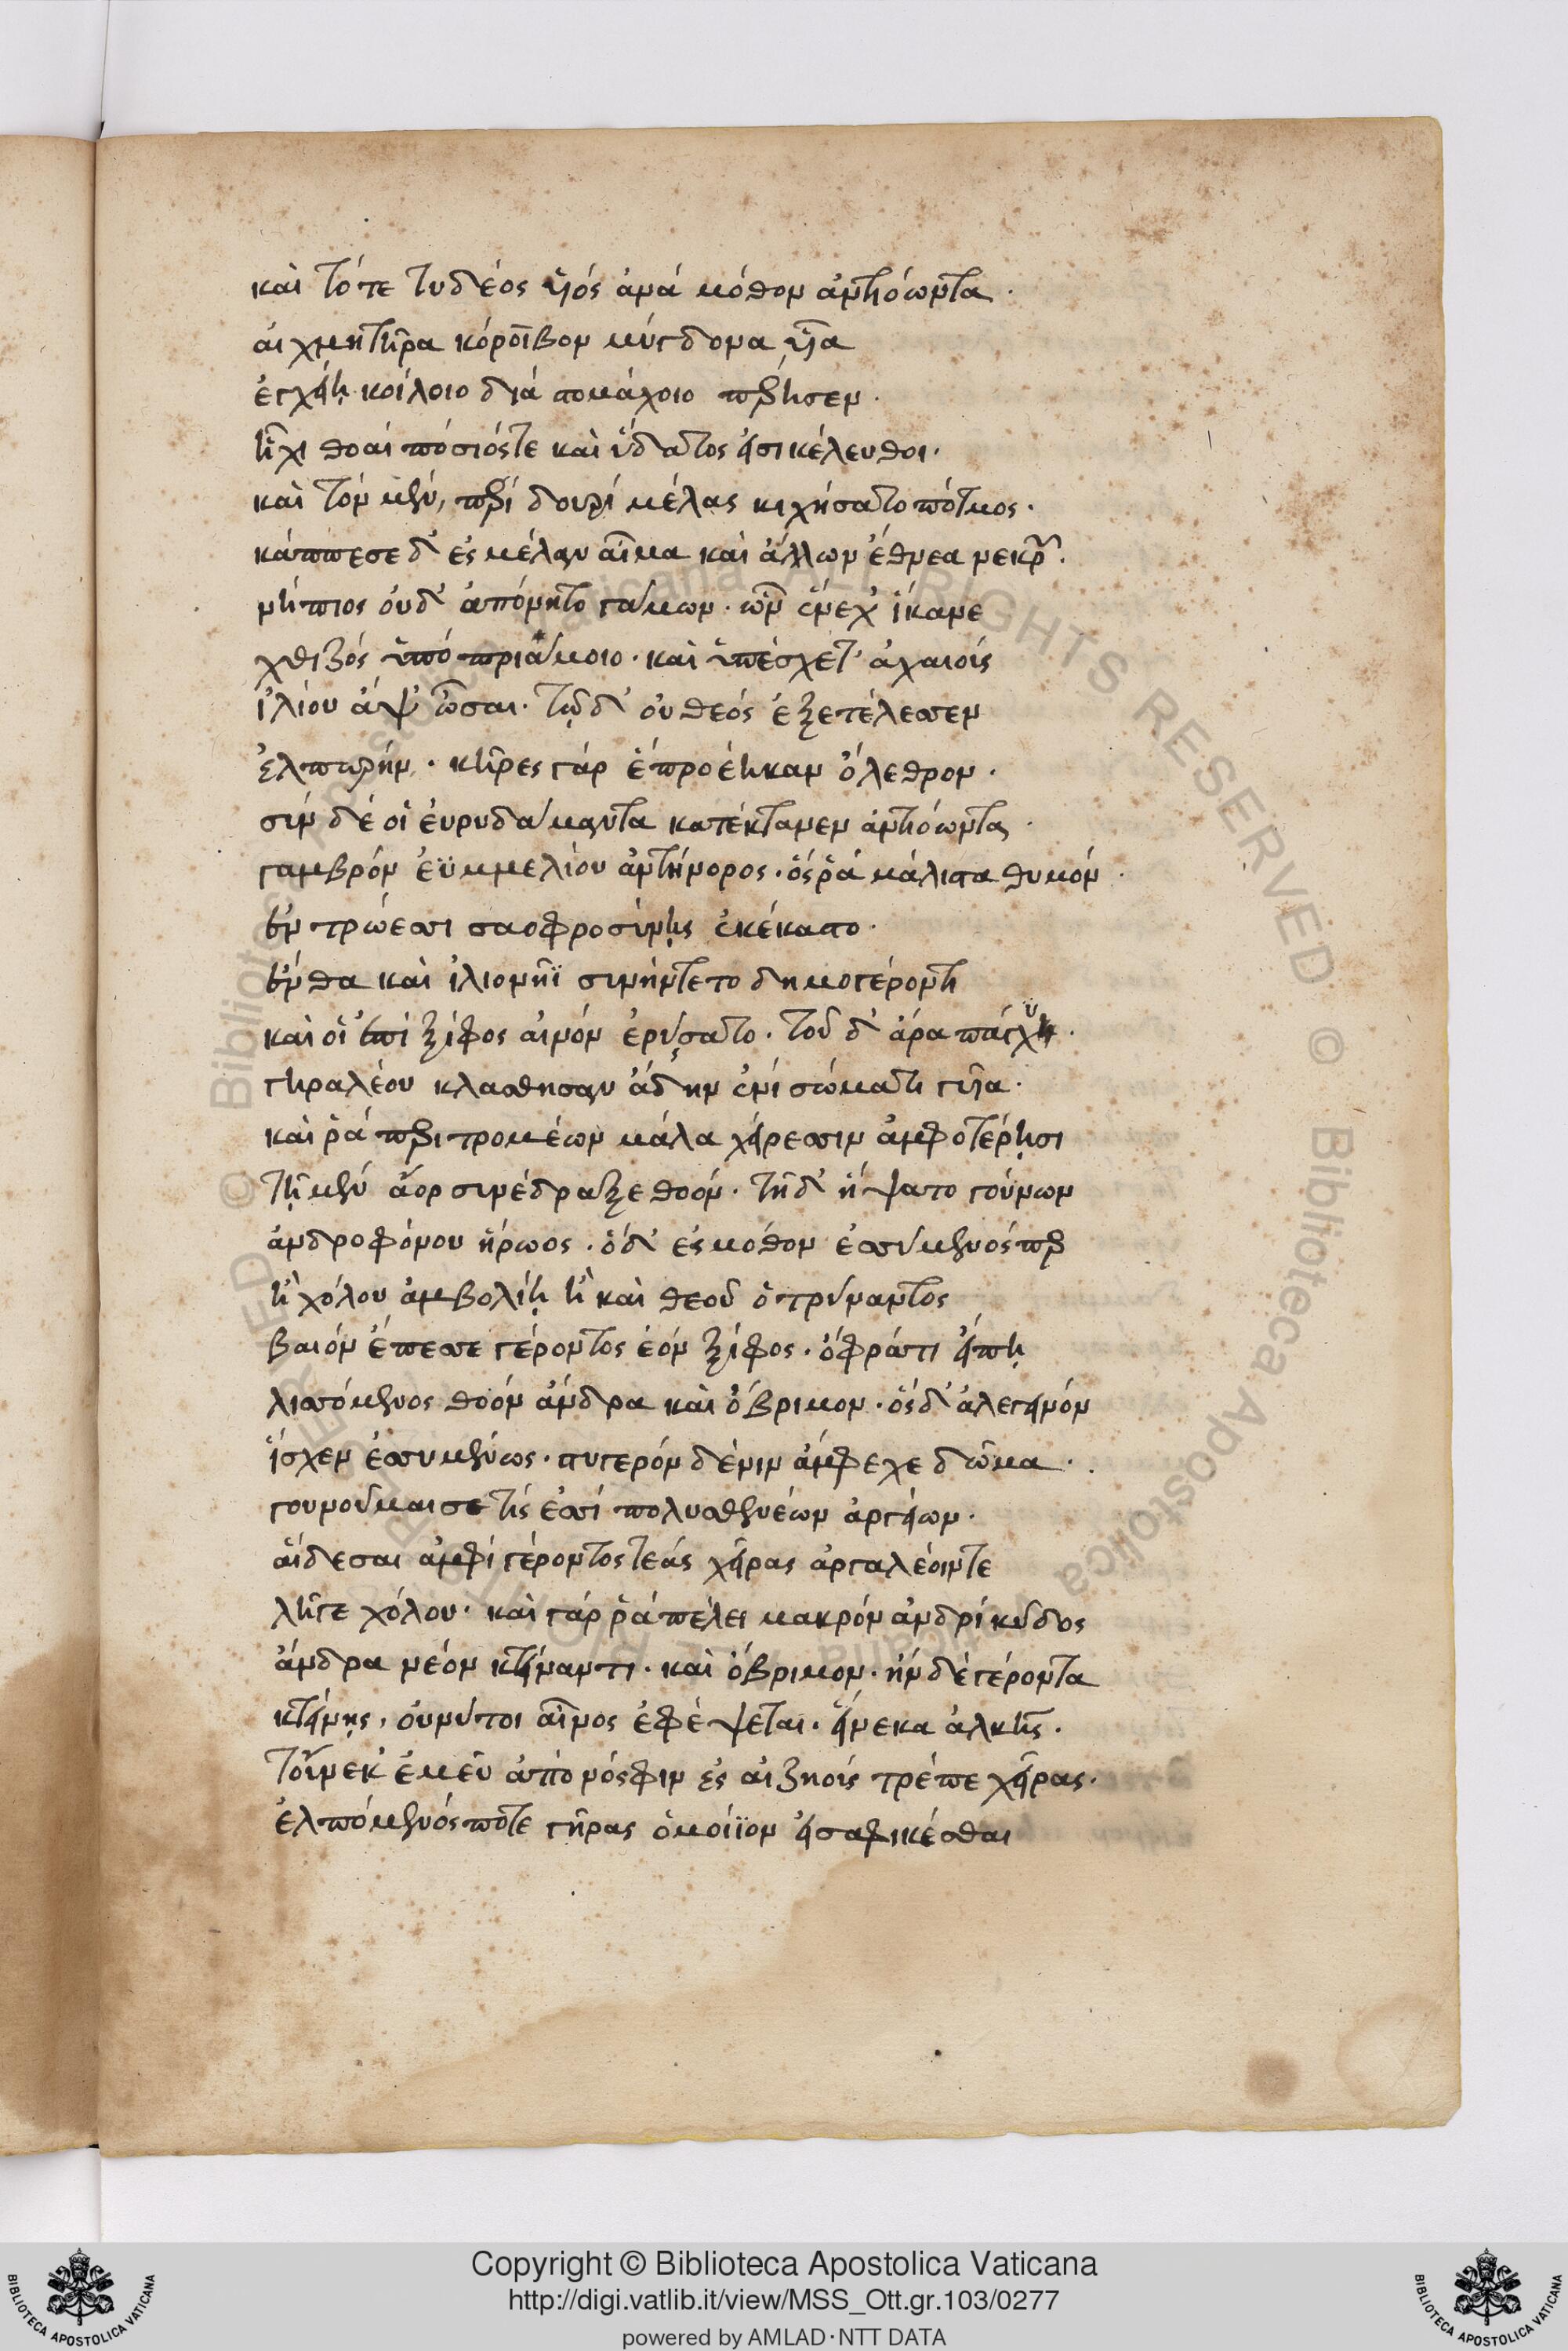 καὶ τότε τυδέος υἱός ἀνά μόθον ἀντιόωντα.
αἰχμητῆρα κόροιβον μύγδονα υἷα
ἐγχείῃ κοίλοιο διά στομάχοιο πέρησεν.
ᾗχι θοαί πόσιός τε καὶ εἴδατος εἰσὶ κέλευθοι.
καὶ τόν μέν, περί δουρί μέλας κιχήσατο πότμος.
κάππεσε δ' ἐς μέλαν αἷμα καὶ ἄλλων ἔθνεα νεκρῶν.
νήπιος οὐδ' ἀπόνητο γάμων. ὧν εἵνεχ' ἵκανε
χθιζός ὑπό πριάμοιο. καὶ ὑπέσχετ' ἀχαιούς
ἰλίου ἄψ ὦσαι. τῷ δ' οὐ θεός ἐξετέλεσσεν
ἐλπωρήν. κῆρες γάρ ἐπιπροέηκαν ὄλεθρον.
σύν δέ οἱ εὐρυδάμαντα κατέκτανεν ἀντιόωντα.
γαμβρόν ἐϋμμελίου ἀντήνορος. ὅς ῥά μάλιστα θυμόν
ἐν τρώεσσι σαοφροσύνῃς ἐκέκαστο.
ἔνθα καὶ ἰλιονῆϊ συνήντετο δημογέροντι
καὶ οἱ ἐπί ξίφος αἰνόν ἐρύσατο. τοῦ δ' ἄρα πάγχυ.
γηραλέου κλάσθησαν ἄδην ἐνί σώματι γυῖα.
καὶ ῥά περιτρομέων μάλα χείρεσσιν ἀμφοτέρῃσι
τῇ μέν ἆορ συνέδραξε θοόν. τῇ δ' ἥψατο γούνων
ἀνδροφόνου ἥρωος. ὁ δ' ἐς μόθον ἐσσύμενός περ
ἢ χόλου ἀμβολίῃ ἢ καὶ θεοῦ ὀτρύναντος
βαιόν ἔπεσσε γέροντος ἑόν ξίφος. ὄφρά τι εἴπῃ
λισσόμενος θοόν ἄνδρα καὶ ὄβριμον. ὅς δ' ἀλεγεινόν
ἴσχεν ἐσσυμένως. στυγερόν δέ μιν ἄμφεχε δῶμα.
γουνοῦμαι σε τίς ἐσσί πολυσθενέων ἀργείων.
αἴδεσαι ἀμφί γέροντος τεάς χεῖρας ἀργαλέου τε
λῆγε χόλου. καὶ γάρ ῥά πέλει μακρόν ἀνδρί κῦδος
ἄνδρα νέον κτείναντι. καὶ ὄβριμον. ἢν δέ γέροντα
κτείνῃς, οὔ νύ τοι αἶνος ἐφέψεται. εἵνεκα ἀλκῆς.
τοὔνεκ' ἐμεῦ ἀπὸ νόσφιν ἐς αἰζηούς τρέπε χεῖρας.
ἐλπόμενός ποτε γῆρας ὁμοίϊον εἰσαφικέσθαι
Copyright © Biblioteca Apostolica Vaticana
http://digi.vatlib.it/view/MSS_Ott.gr.103/0277
powered by AMLAD·NTT DATA